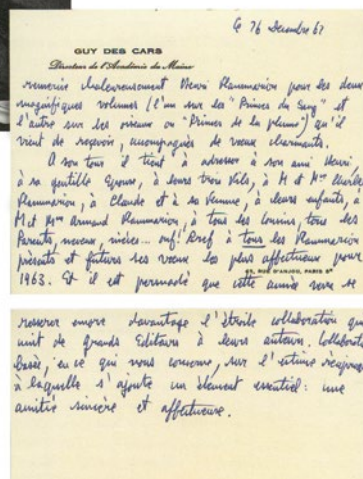 le 26 Décembre 62
GUY DES CARS
Directeur de l'Académie du Maine
remercie chaleureusement Henri Flammarion pour les deux
magnifiques volumes (l'un sur les "Princes du Sang" et
l'autre sur les oiseaux ou "Princes de la plume") qu'il
vient de recevoir, accompagnés de vœux charmants.
A son tour il tient à adresser à son ami Henri,
à sa gentille Epouse, à leurs trois Fils, à M et Mme Charles
Flammarion, à Claude et à sa Femme, à leurs enfants, à
M et Mme Armand Flammarion, à tous les cousins, tous les
Parents, neveux, nièces... ouf! Bref à tous les Flammarion
présents et futurs ses vœux les plus affectueux pour
1963. Et il est persuadé que cette année verra se
RUE D'ANJOU, PARIS 8e
resserrer encore davantage l'étroite collaboration qui
unit de grands Editeurs à leurs auteurs. Collaboration
basée, en ce qui nous concerne, sur l'estime réciproque
à laquelle s'ajoute un élément essentiel: une
amitié sincère et affectueuse.